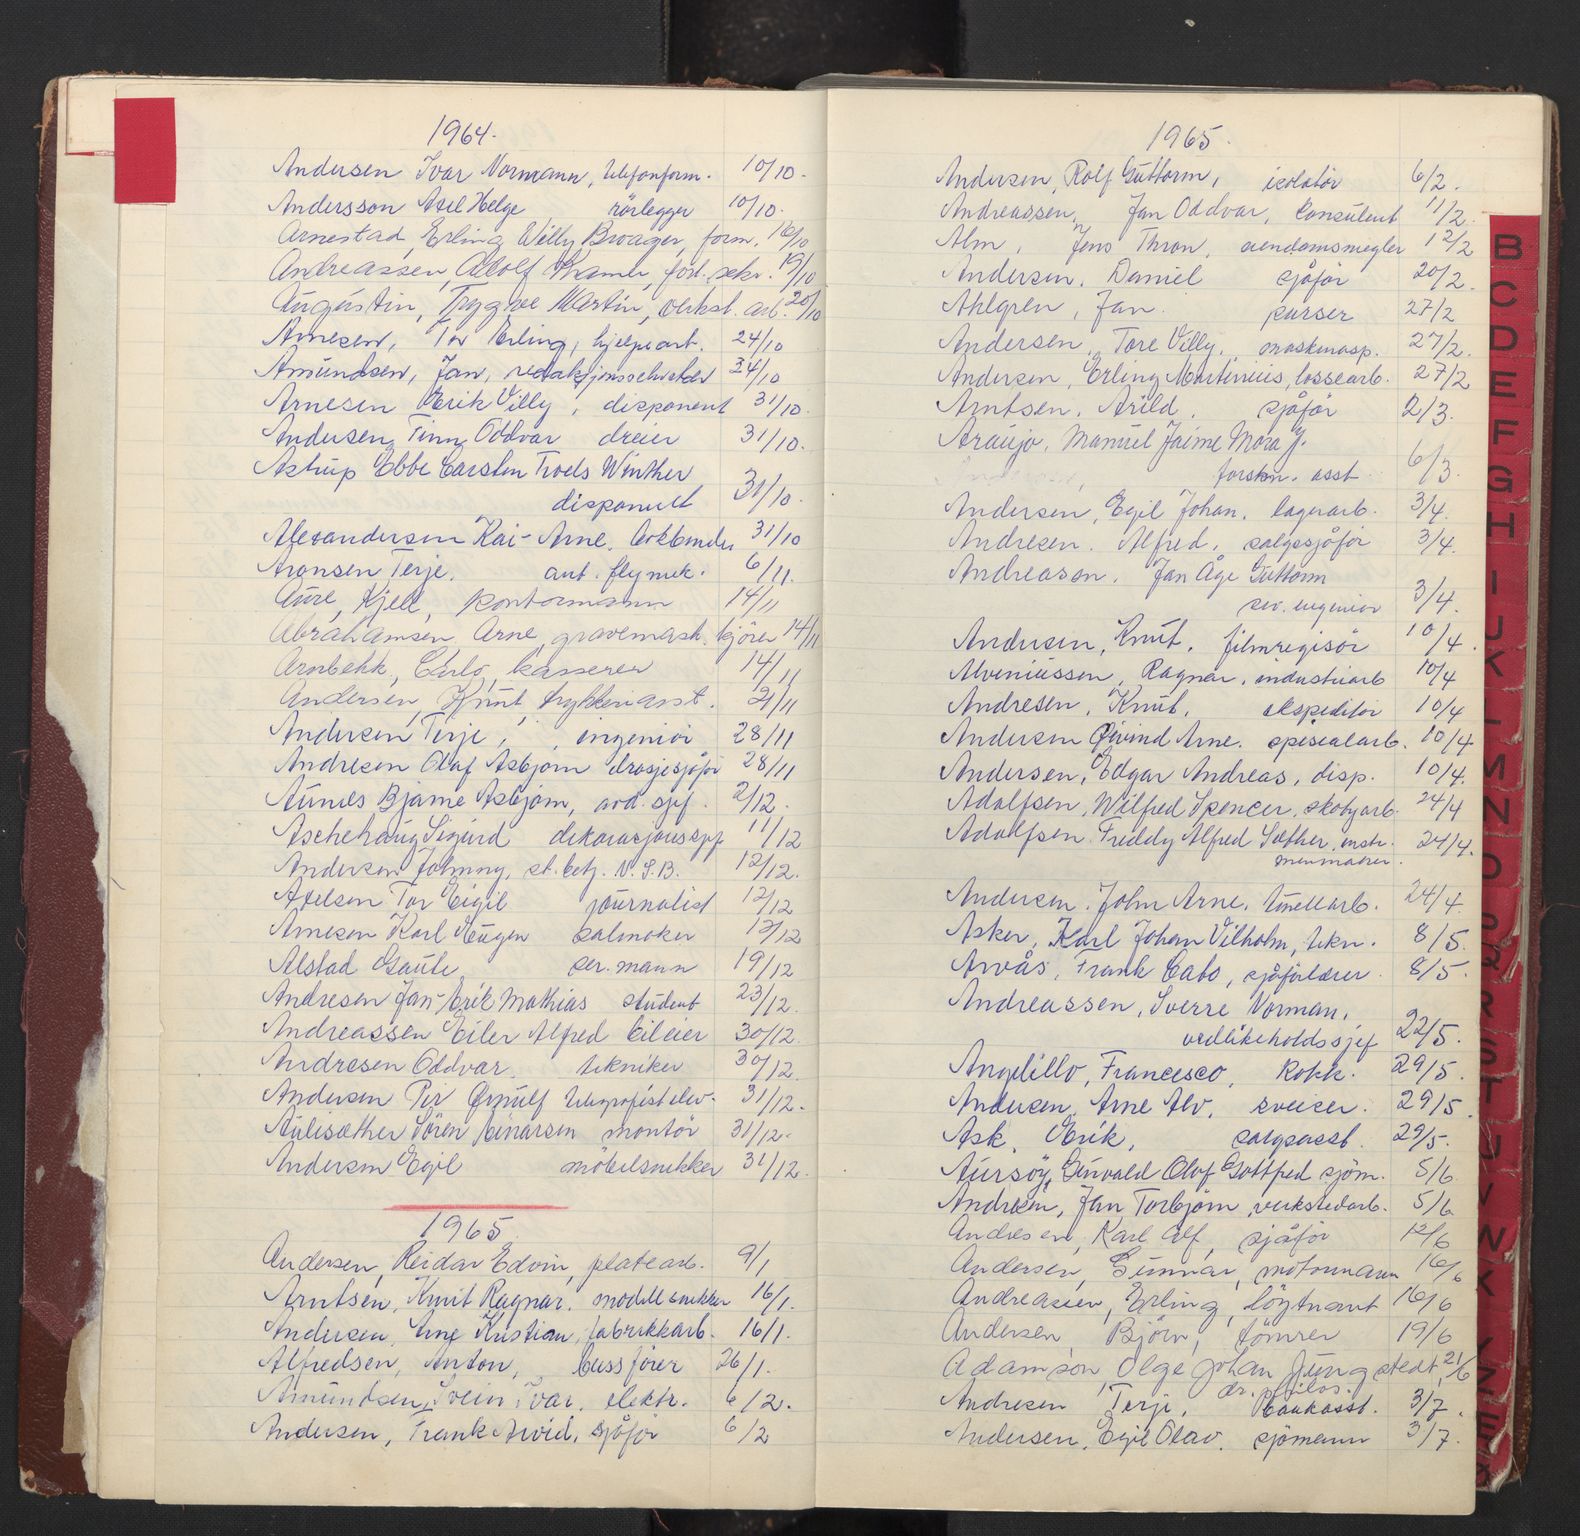 1964.
Andersen Ivar Normann, telefonform. 10/10.
Andersson Axel Helge rörlegger 10/10.
Arnestad, Erling Willy Broager, form. 16/10
Andreassen, Adolf, forb. sekr. 19/10
Augustin, Trygve Martin, verkst. arb. 20/10
Arnesen, Tor Erling, hjelpearb. 24/10
Amundsen, Jan, redaksjonssekretær 24/10
Arnesen Erik Villy, disponent 31/10.
Andersen, Finn Oddvar dreier 31/10.
Astrup Ebbe Carsten Troels Winther
disponent 31/10.
Alexandersen Kai-Arne, bokbinder 31/10
Aronsen Terje. aut. flymek. 6/11.
Aure, Kjell, kontormann 14/11
Abrahamsen, Arne, gravemask. kjörer 14/11
Arnbekk, Carlo, kasserer 14/11
Andersen, Knut, trykkeriasst. 21/11
Andersen Terje, ingeniör 28/11
Andresen Olaf Asbjörn drosjesjåför 28/11
Aunes Bjarne Asbjörn, avd. sjef. 2/12.
Aschehaug Sigurd dekorasjonssjef 11/12
Andersen Johnny, st. betj. N.S.B. 12/12.
Axelsen Tor Eigil journalist 12/12
Arnesen Karl Haugen salmaker 12/12
Alstad Gaute, ser. mann 19/12
Andresen Jan-Erik Mathias student 23/12.
Andreassen Eiler Alfred bileier 30/12.
Andresen Oddvar. tekniker 30/12.
Andersen Per Ørnulf telegrafistelev. 31/12.
Aulisæther Sören Einarsen montör 31/12.
Andersen Egil möbelsnekker 31/12.
1965
Andersen, Reidar Edvin, platearb. 9/1
Arntsen, Knut Ragnar. modellsnekker 16/1.
Andersen, Arne Kristian, fabrikkarb. 16/1.
Alfredsen, Anton, bussförer 26/1.
Amundsen, Svein Ivar. elektr. 6/2.
Andersen, Frank Arvid. sjåför 6/2
1965.
Andersen, Rolf Guttorm, isolatör 6/2.
Andreassen, Jan Oddvar, konsulent 11/2.
Alm, Jens Thron, eiendomsmegler 12/2
Andersen. Daniel sjåför 20/2.
Ahlgren, Jan. purser 27/2
Andersen, Tore Villy, maskinasp. 27/2.
Andersen, Erling Martinius, lossearb. 27/2
Arntsen. Arild. sjåför 2/3.
Araujo. Manuel Jaime Mora J.
forskn. asst. 6/3.
Andersen, Egil Johan. lagerarb. 3/4.
Andresen. Alfred. salgssjåför 3/4.
Andreason. Jan Åge Guttorm
siv. ingeniör 3/4.
Andersen, Knut. filmregisör 10/4.
Alveniussen, Ragnar, industriarb 10/4
Andresen, Knut, ekspeditör 10/4
Andersen Øivind Arne. spesialarb. 10/4
Andersen, Edgar Andreas, disp. 10/4.
Adolfsen, Wilfred Spencer, skotöyarb. 24/4
Adolfsen Freddy Alfred Sæther, instr.
menmaker. 24/4.
Andersen. John Arne. tunellarb. 24/4.
Asker, Karl Johan Vilholm, tekn. 8/5.
Arvås, Frank Cato, sjåförlærer. 8/5.
Andreassen, Sverre Norman,
vedlikeholdssjef 22/5.
Angelillo, Francesco, kokk. 29/5.
Andersen, Arne Alv. sveiser. 29/5.
Ask. Erik, salgsasst. 29/5.
Aursöy, Gunvald Olaf Gottfred sjöm. 5/6.
Andresen, Jan Torbjörn, verkstedarb. 5/6
Andresen, Karl Alf, sjåför 12/6
Andersen, Gunnar, motormann 16/6
Andreassen, Erling, löytnant 16/6
Andersen, Björn, tömrer 19/6
Adamson Olge Johan Jungstedt, 21/6
dr. philos.
Andresen Terje, bankasst. 3/7.
Andersen, Egil Olav. sjömann 3/7.
B
C
D
E
F
G
H
I
J
K
L
M
N
O
P
Q
R
S
T
U
V
W
X
Y
Z
Æ
Ø